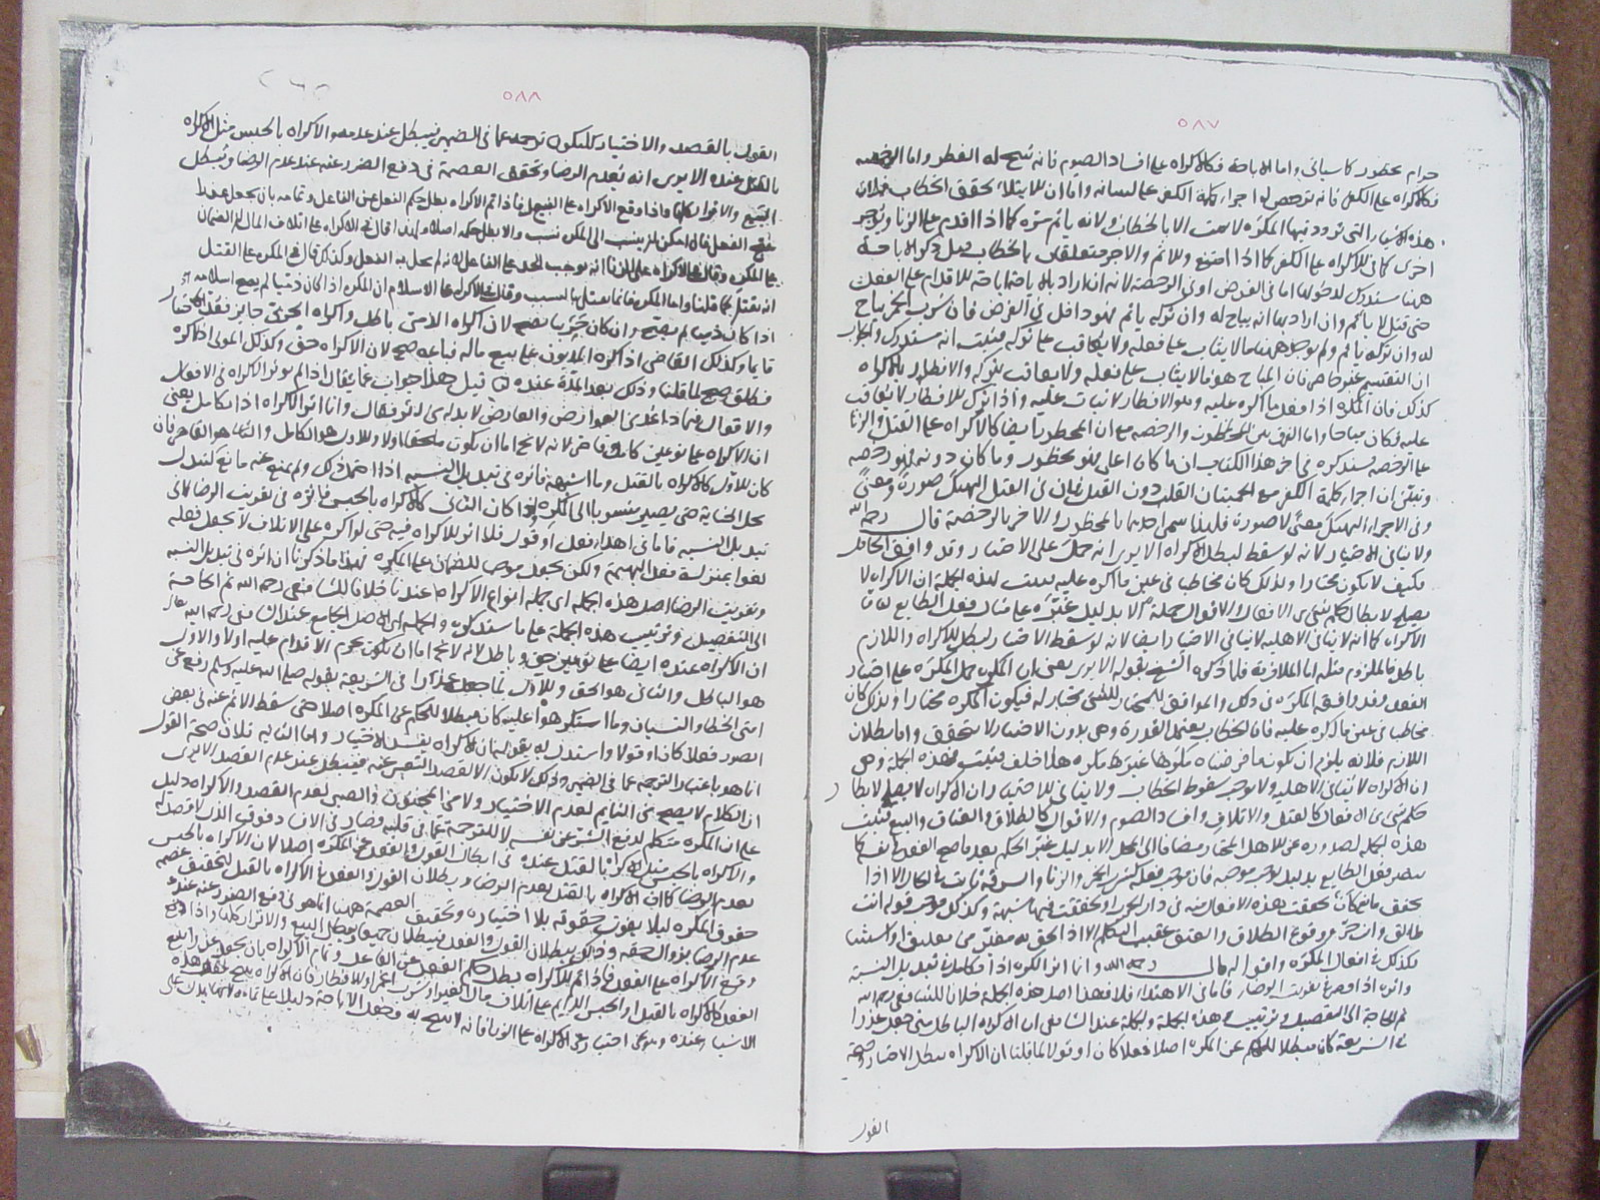 ٥٨٧
حرام محظور كما سيأتي واما الاباحة فكالاكراه على افساد الصوم فانه يبيح له الفطر واما الرخصة
فكالاكراه على الكفر فانه ترخص له اجراء كلمة الكفر على لسانه واما ان الابتلاء يحقق الخطاب فلان
هذه الاشياء التي تردد فيها المكره لا يثبت الا بالخطاب ولانه يأثم مرة كما اذا اقدم على الزنا ويؤجر
اخرى كما في الاكراه على الكفر كما اذا امتنع والاثم والاجر متعلقان بالخطاب قيل ذكر الاباحة
ههنا مستدرك لدخولها اما في الفرض او في الرخصة لانه ان اراد بالاباحة اباحة الاقدام على الفعل
حتى قتل لا يأثم وان اراد بها انه يباح له وان تركه يأثم فهو داخل في الفرض فان شرب الخمر يباح
له وان تركه يأثم ولم يوجد ههنا ما لا يثاب على فعله ولا يعاقب على تركه فثبت انه مستدرك والجواب
ان التقسيم غير حاصر فان المباح هو ما لا يثاب على فعله ولا يعاقب بتركه والافطار بالاكراه
كذلك فان المكره اذا فعل ما اكره عليه وهو الافطار لا يثاب عليه واذا ترك الافطار لا يعاقب
عليه فكان مباحا واما الفرق بين المحظور والرخصة مع ان المحظور ايضا كالاكراه على القتل والزنا
على الرخصة سنذكره في اخر هذا الكتاب ان ما كان اعلى فهو محظور وما كان دونه فهو رخصة
وتبين ان اجراء كلمة الكفر مع اطمينان القلب دون القتل فان في القتل الهتك صورة ومعنى
وفي الاجراء الهتك معنى لا صورة فلهذا سمى احدهما بالمحظور والاخر بالرخصة قال رحمه الله
ولا ينافي الاختيار لانه لو سقط لبطل الاكراه الا يرى انه حمل على الاختيار وقد وافق الحامل
فكيف لا يكون مختارا ولذلك كان مخاطبا في عين ما اكره عليه فثبت بهذه الجملة ان الاكراه لا
يصلح لابطال حكم شيء من الافعال والاقوال جملة الا بدليل غيره على مثال فعل الطايع
الاكراه كما انه لا ينافي الاهلية لا ينافي الاختيار ايضا لانه لو سقط الاختيار لبطل الاكراه واللازم
باطل فالملزوم مثله اما الملازمة فلما ذكره الشيخ بقوله الا يرى يعني ان المكره حمل المكره على اختيار
الفعل وقد وافقه المكره في ذلك والموافق للمختار للشيء مختار له فيكون المكره مختارا ولذلك كان
مخاطبا في عين ما اكره عليه فان الخطاب يعتمد القدرة وهي بدون الاختيار لا تتحقق واما بطلان
اللازم فلانه يلزم ان يكون ما فرضناه مكرها غير مكره هذا خلف فثبت بهذه الجملة وهي
ان الاكراه لا ينافي الاهلية ولا يوجب سقوط الخطاب ولا ينافي الاختيار ان الاكراه لا يصلح لابطال
حكم شيء من الافعال كالقتل والاتلاف وافساد الصوم والاقوال كالطلاق والعتاق والبيع فيثبت
هذه الجملة لصدوره عن الاهل المختار مضافا الى المحل الا بدليل غير الحكم بعد ما صح الفعل بنفسه كما
يتغير فعل الطايع بدليل يوجب موجبه فان موجب فعله كشرب الخمر والزنا والسرقة ثابت في الحال الا اذا
تحقق مانع كما تحققت هذه الافعال منه في دار الحرب او تحققت فيها شبهة وكذلك موجب قوله انت
طالق وانت حر وقوع الطلاق والعتق عقيب التكلم الا اذا لحق به مغير من تعليق او استثنا
فكذلك افعال المكره واقواله قال رحمه الله وانما اثر الكره اذا تكامل في تبديل النسبة
واثره اذا قصر في تفويت الرضا فاما في الاهدار فلا فهذا اصل هذه الجملة خلافا للشافعي رحمه الله
ثم الحاجة الى التفصيل وترتيب هذه الجملة والجملة عند الشافعي ان الاكراه الباطل متى جعل عذرا
في الشريعة كان مبطلا للحكم عن المكره اصلا فعلا كان او قولا لما قلنا ان الاكراه يبطل الاختيار وصحة
القول
٥٨٨
القول بالقصد والاختيار ليكون ترجمة عما في الضمير فيبطل عند عدمه والاكراه بالحبس مثل الاكراه
بالقتل عنده الا يرى انه يعدم الرضا وتحقق العصمة في دفع الضرر عنه عند عدم الرضا ويبطل
البيع والاقوال كلها واذا وقع الاكراه على الفعل فاذا تم الاكراه بطل حكم الفعل عن الفاعل وتمامه بان يجعل عذرا
يبيح الفعل فان امكن ان ينسب الى المكره نسب والا بطل حكمه اصلا ولهذا قال في الاكراه على اتلاف المال ان الضمان
على المكره وقال في الاكراه على الزنا انه يوجب الحد على الفاعل لانه لم يحل به الفعل وكذلك قال في المكره على القتل
انه يقتل لما قلنا واما المكره فانما يقتل بالتسبيب وقال في الاكراه على الاسلام ان المكره اذا كان ذميا لم يصح اسلامه
اذا كان ذميا لم يصح وان كان حربيا يصح لان اكراه الذمي باطل واكراه الحربي جايز فعد الاختيار
قايما وكذلك القاضي اذا اكره المديون على بيع ماله فباعه صح لان الاكراه حق وكذلك المولي اذا اكره
فطلق صح لما قلنا وذلك بعد المدة عنده قيل هذا جواب عما يقال اذا لم يؤثر الاكراه في الافعال
والاقوال فيما ذا غدى العوارض والعارض لا بد له من اثر فقال وانما اثر الاكراه اذا تكامل يعني
ان الاكراه على نوعين كامل وقاصر لانه لا يخ اما ان يكون ملجئا اولا والاول هو الكامل والثاني هو القاصر فان
كان الاول كالاكراه بالقتل وما اشبهه فاثره في تبديل النسبة اذا احتمل ذلك ولم يمنع عنه مانع كتبدل
محل الجناية حتى يصير منسوبا الى المكره وان كان الثاني كالاكراه بالحبس فاثره في تفويت الرضا لا في
تبديل النسبة فاما في اهدار فعل او قول فلا اثر للاكراه فيه حتى لو اكره على الاتلاف لا يجعل فعله
لغوا بمنزلة فعل البهيمة ولكن يجعل موجبا للضمان على المكره فهذا ما ذكرنا ان اثره في تبديل النسبة
وتفويت الرضا اصل هذه الجملة اي جملة انواع الاكراه عندنا خلافا للشافعي رحمه الله ثم الحاجة
الى التفصيل وترتيب هذه الجملة على ما سنذكره والجملة اي الاصل الجامع عند الشافعي رحمه الله
ان الاكراه عنده ايضا على نوعين حق وباطل لانه لا يخ اما ان يكون يحرم الاقدام عليه اولا والاول
هو الباطل والثاني هو الحق والاول لما جعل عذرا في الشريعة بقوله صلى الله عليه وسلم رفع عن
امتي الخطا والنسيان وما استكرهوا عليه كان مبطلا للحكم عن المكره اصلا حتى سقط الاثم عنه في بعض
الصور فعلا كان او قولا واستدل به بقوله ان الاكراه يفسد الاختيار واما الثانية فلان صحة القول
انما هو باعتبار الترجمة عما في الضمير وذلك لا يكون الا بقصد التعبير عنه فيبطل عند عدم القصد الا يرى
ان الكلام لا يصح من النايم لعدم الاختيار ولا من المجنون والصبي لعدم القصد والاكراه دليل
على ان المكره متكلم لدفع الشر عن نفسه لا للترجمة عما في قلبه فصار في الافساد فوق الذي لا قصد له
والاكراه بالحبس مثل الاكراه بالقتل عنده في ابطال القول والفعل عن المكره اصلا لان الاكراه بالحبس
يعدم الرضا كما ان الاكراه بالقتل يعدم الرضا وبطلان القول والفعل في الاكراه بالقتل لتحقيق عصمة
حقوق المكره لئلا يفوت حقوقه بلا اختياره وتحقيق العصمة ههنا انما هو في دفع الضرر عنه عند
عدم الرضا بزوال حقه وذلك ببطلان القول والفعل فيبطلان جميعا يبطل البيع والاقرار كلها واذا
وقع الاكراه على الفعل فاذا تم الاكراه بطل حكم الفعل عن الفاعل وتمام الاكراه بان يجعل عذرا يبيح
الفعل كالاكراه بالقتل او الحبس الدايم على اتلاف مال الغير او شرب الخمر او الافطار فان الاكراه يبيح هذه
الاشياء عنده ومتى اختيار عن الاكراه على الزنا فانه لا يبيح به وجعل الاباحة دليلا على تمامه